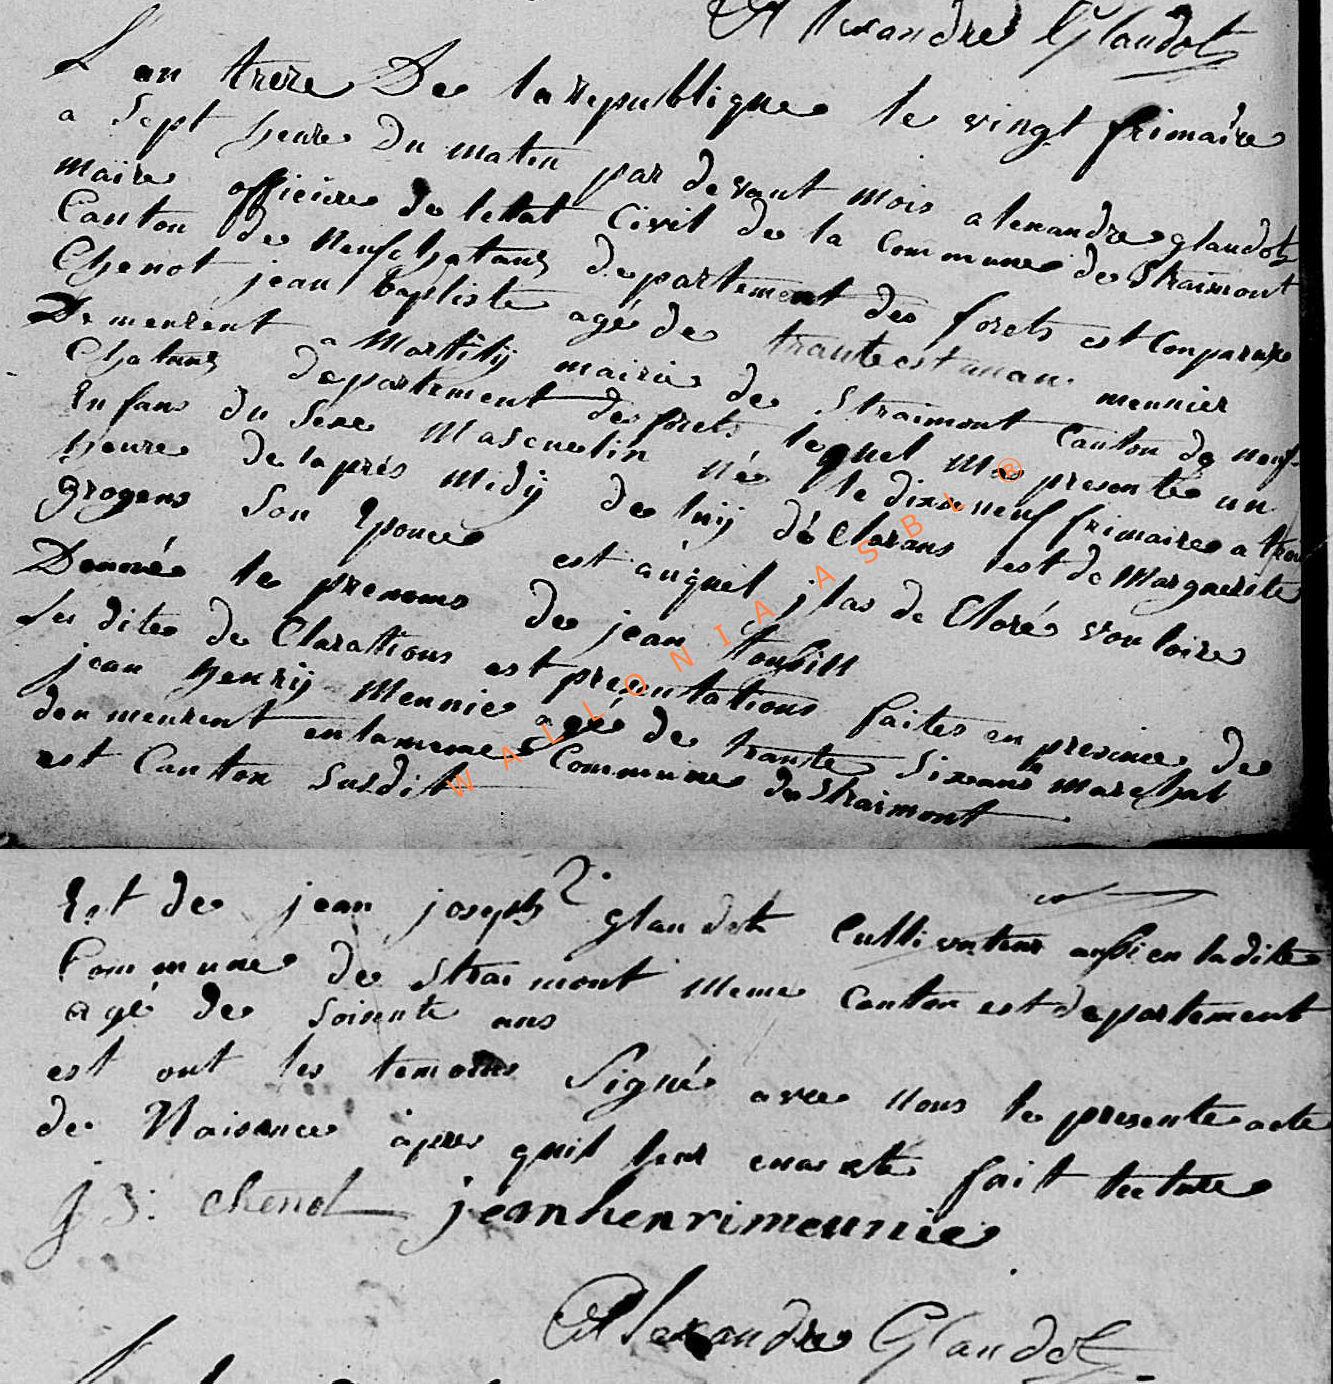 Alexandre Glaudot
L an treze De la republique le vingt frimaire
a Sept heure Du maten par devant mois alexandre glaudot
maire officiere de letat Civil de la Commune de Straimont
Canton de Neufchataux departement des forets est Conparuxe
Chenot jean baptiste agé de trante est un an meunier
Demeurent a Martilly mairie de Straimont Canton de neuf
Chataux departement de forets lequel Ma presenté un
Enfans du Sexe Mascuelin né le dixe neuf frimaire a trois
heure de la prés Midÿ de luij déClarans est de Marguerite
grogens Son Epouce est auquel jlas de Claré vouloire
Donné le prenoms de jean Toussin
les dite de Clarattions est presentations faites en presince de
jean henrÿ Mennie agé de trante Sixe ans marechal
den meurent en la meme Commune de Straimont
est Canton Susdit
WALLONIA ASBL ®
Est de jean joseph glaudot Cultivateur aussi en la dite
Commune de Strai mont Meme Canton est departement
agé de Soisente ans
est ont les temoins Signé avec Nous le presente acte
de Naisance àpres quil leur enas eté fait lecture
J B: Chenot jean henri meunie
Alexandre Glaudot